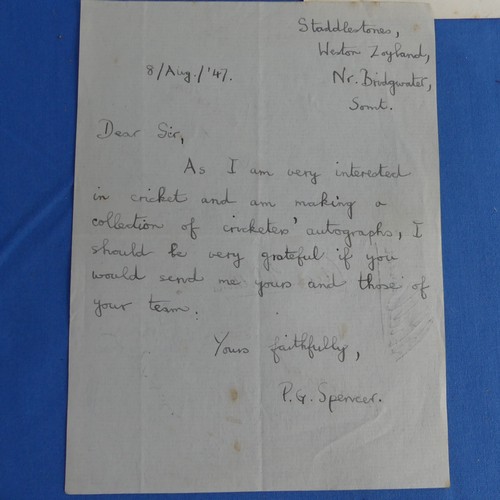 Staddlestones,
Weston Zoyland,
8/Aug./'47.
Nr. Bridgwater,
Somt.
Dear Sir,
As I am very interested
in cricket and am making a
collection of cricketers' autographs, I
should be very grateful if you
would send me yours and those of
your team.
Yours faithfully,
P.G. Spencer.